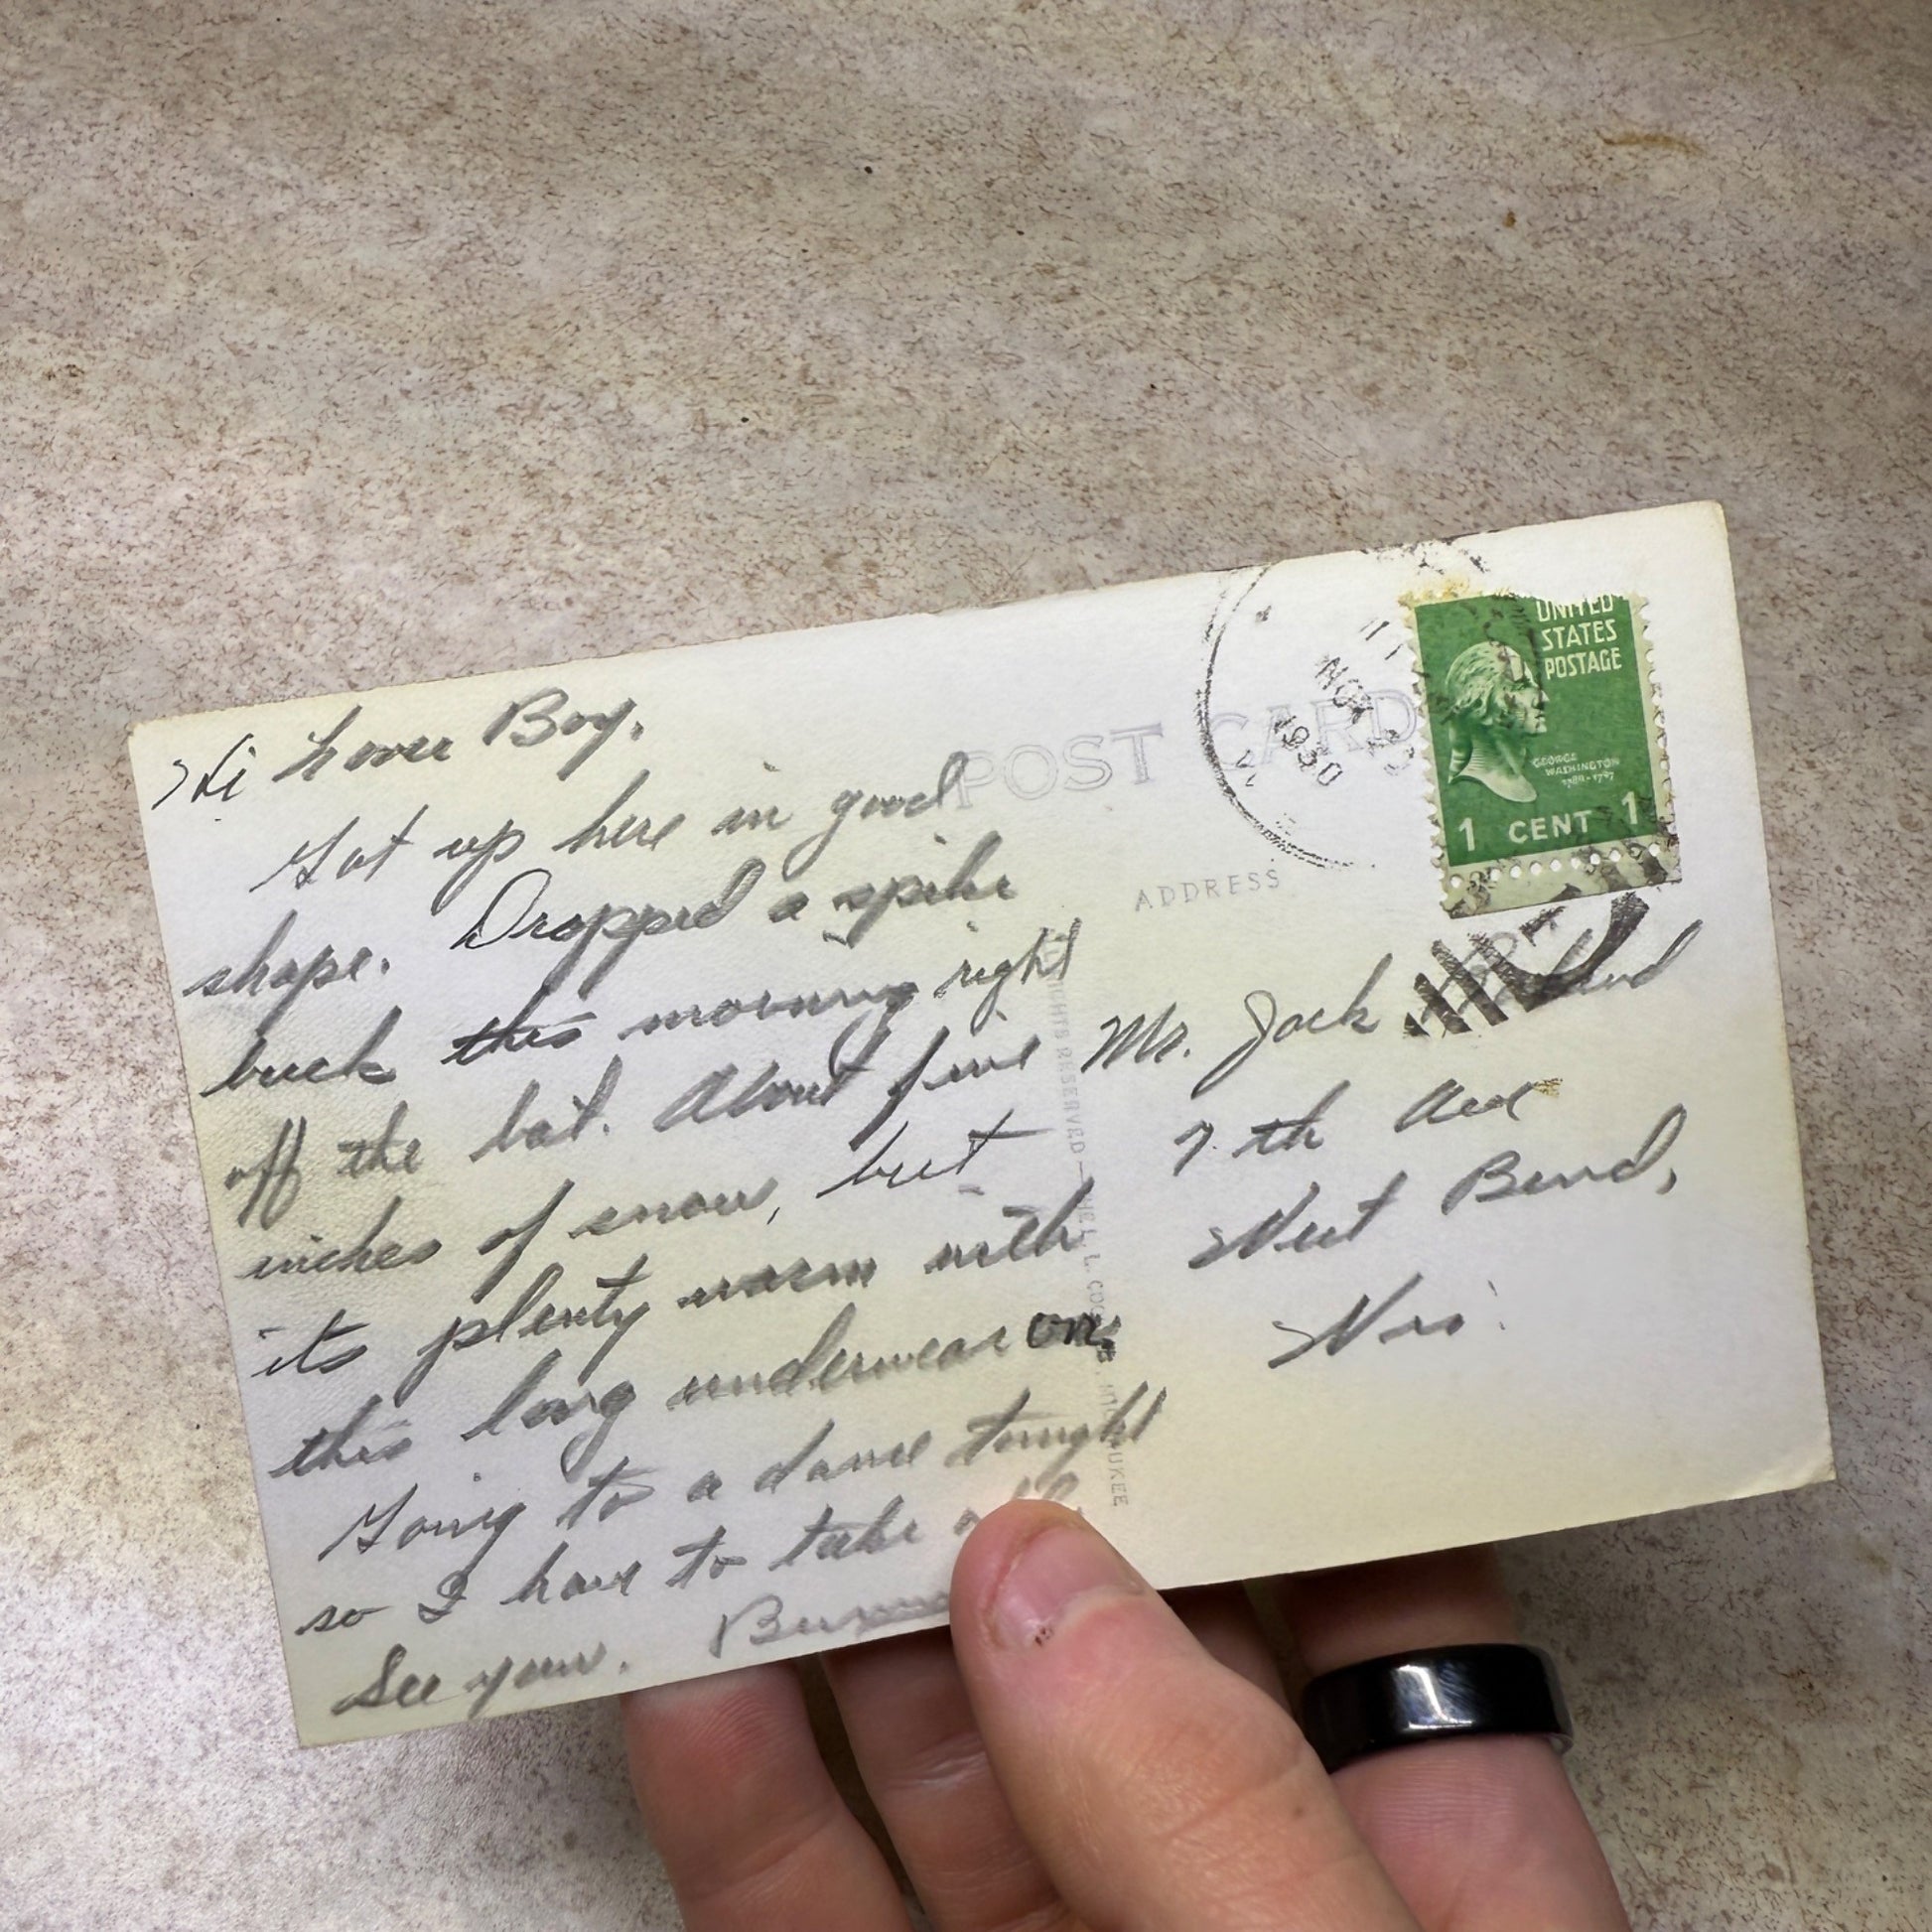 Hi Lover Boy,
Got up here in good
shape. Dropped a spike
buck this morning right
off the bat. About five
inches of snow, but
its plenty warm with
this long underwear on.
Going to a dance tonight
so I have to take
See you.
POST CARD
NOV
1950
UNITED
STATES
POSTAGE
GEORGE
WASHINGTON
1789-1797
1 CENT 1
ADDRESS
Mr. Jack
7th Ave
West Bend,
Wis.
RIGHTS RESERVED — THE L. L. COOK